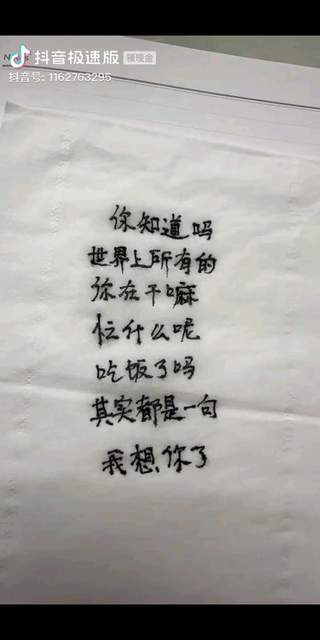 抖音极速版 领现金
抖音号: 1162763295
你知道吗
世界上所有的
你在干嘛
忙什么呢
吃饭了吗
其实都是一句
我想你了